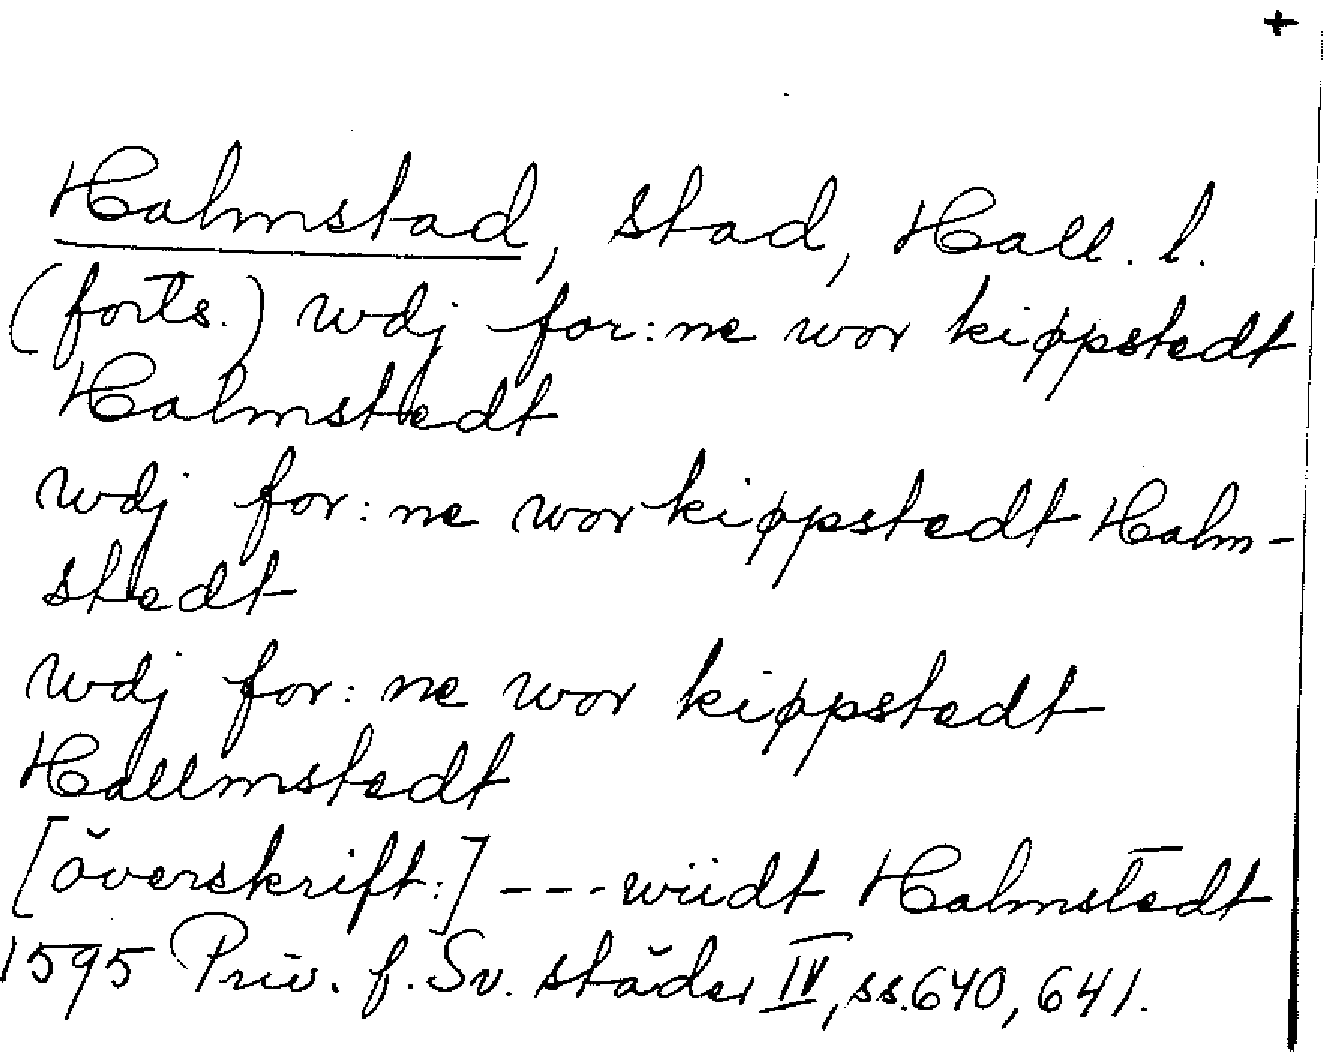 +
Halmstad, stad, Hall. l.
(forts.) wdj for:ne wor kiøpstedt
Halmstedt
wdj for:ne wor kiøpstedt Halm-
stedt
wdj for:ne wor kiøpstedt
Hallmstedt
[överskrift:] --- wiidt Halmstedt
1595 Priv. f. Sv. städer IV, ss. 640, 641.